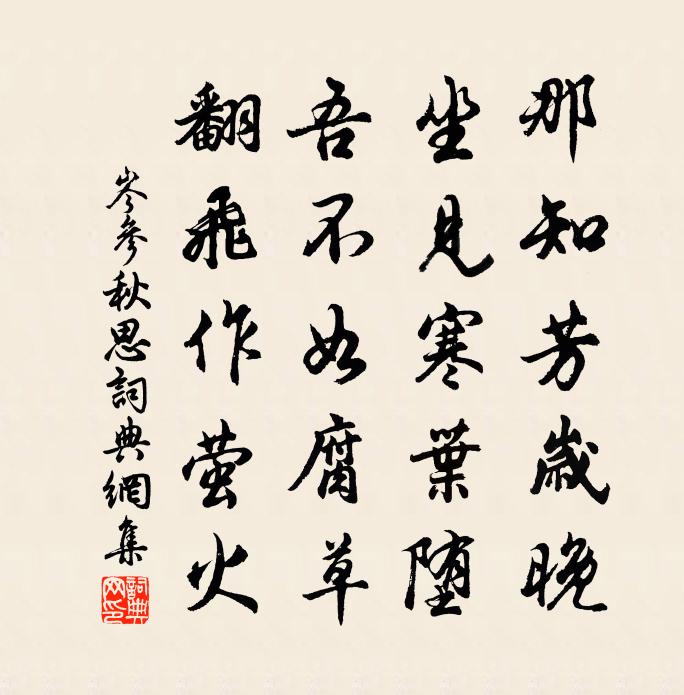 那知芳歲晚
坐見寒葉堕
吾不如腐草
翻飛作萤火
岑參秋思詞典網集
詞典網印